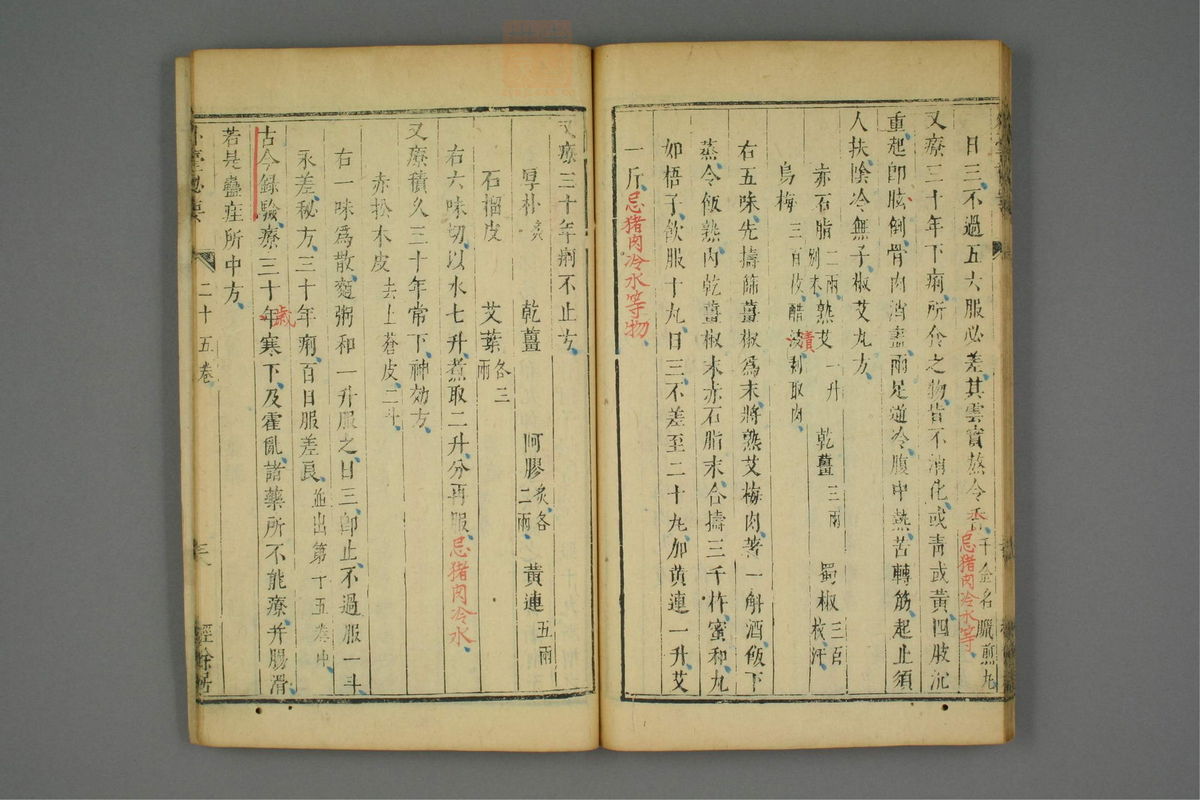 日三不過五六服必差其雲實熬令香千金名臘煎丸
忌猪肉冷水等
又療三十年下痢所食之物皆不消化或青或黃四肢沉
重起卽眩倒骨肉消盡兩足逆冷腹中熱苦轉筋起止須
人扶陰冷無子椒艾丸方
赤石脂二兩別末熟艾一升 乾薑三兩 蜀椒三百枚汗
烏梅三百枚醋漬剝取肉
漬
右五味先擣篩薑椒爲末將熟艾梅肉著一斛酒飯下
蒸令飯熟內乾薑椒末赤石脂末合擣三千杵蜜和丸
如梧子飲服十丸日三不差至二十丸加黃連一升艾
一斤忌猪肉冷水等物
又療三十年痢不止方
厚朴炙 乾薑 阿膠炙各二兩 黃連五兩
石榴皮 艾葉各三兩
右六味切以水七升煮取二升分再服忌猪肉冷水
又療積久三十年常下神効方
赤松木皮去上蒼皮二斗
右一味爲散麵粥和一升服之日三卽止不過服一斗
永差秘方三十年痢百日服差良並出第十五卷中
歲
古今録驗療三十年寒下及霍亂諸藥所不能療并腸滑
若是蠱疰所中方
外臺秘要 二十五卷 三 經餘居